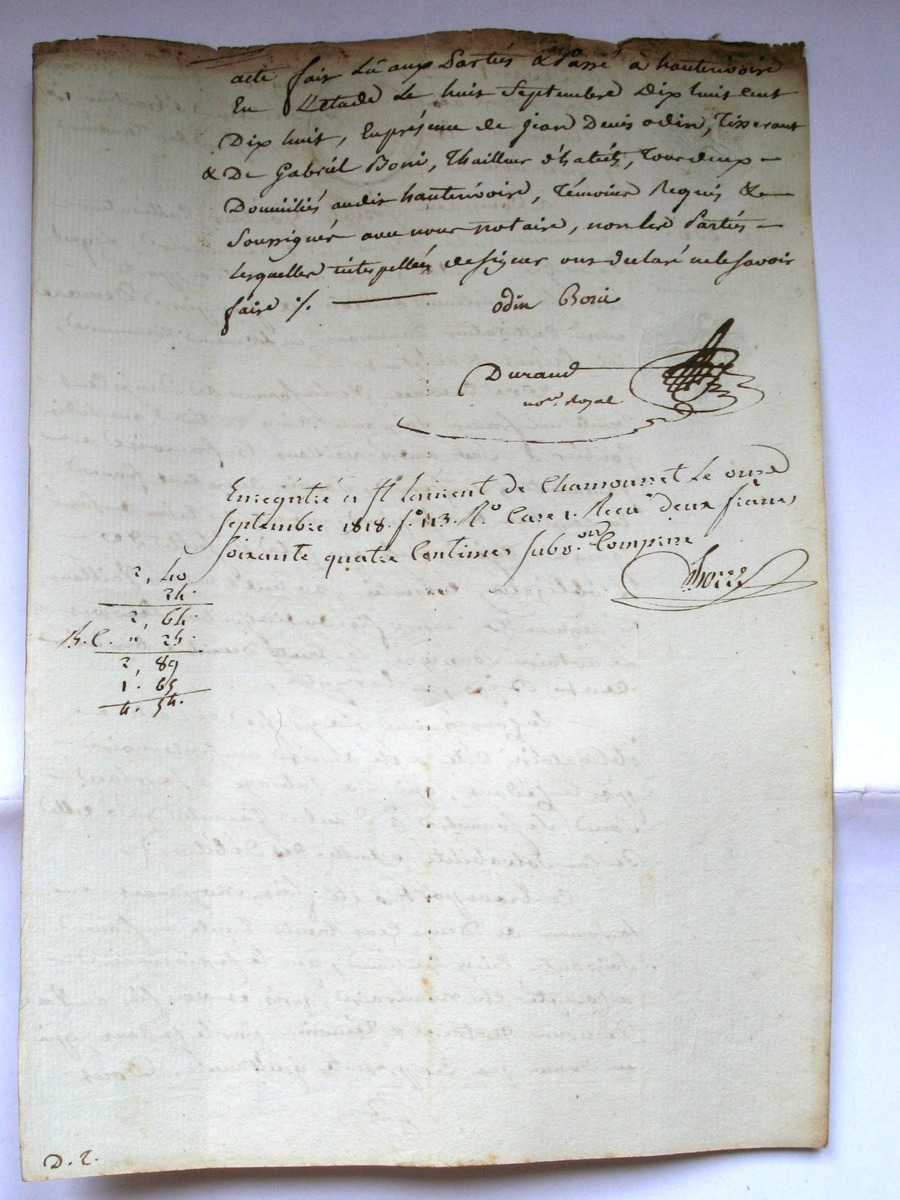 acte fait Lû aux Partiés & Passé à hauterivoire
En L'étude Le huit Septembre Dix huit cent
Dix huit, En présence de jean Denis odin, Tisserant
& De Gabriël Boni, Thailleur d'habits, Tous deux –
Domiciliés audit hauterivoire, Témoins Requis & –
Soussignés avec nous notaire, non les Partiés –
Lesquelles interpellées de signer ont déclaré ne le savoir
faire ./.
odin Boni
Durand
not.re Royal
Enregistré a St Laurent de Chamousset Le onze
Septembre 1818. f.o 113. R.o Case 1. Recu deux francs
Soixante quatre Centimes Subv.on Comprise
2, 40
24.
2, 64.
" 25.
2, 89
1. 65
4. 54.
D. 2.